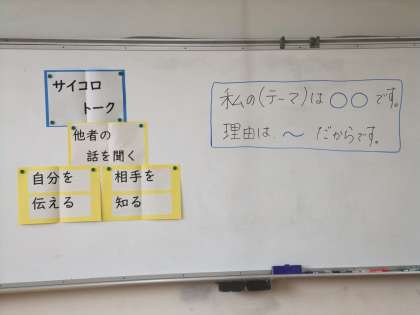 サイコロ
トーク
他者の
話を聞く
自分を
伝える
相手を
知る
私の(テーマ)は○○です。
理由は、～だからです。